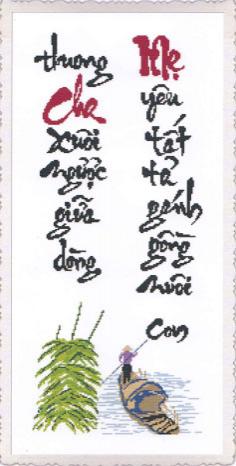 thương
Cha
xuôi
ngược
giữa
dòng
Mẹ
yêu
tất
tả
gánh
gồng
nuôi
con